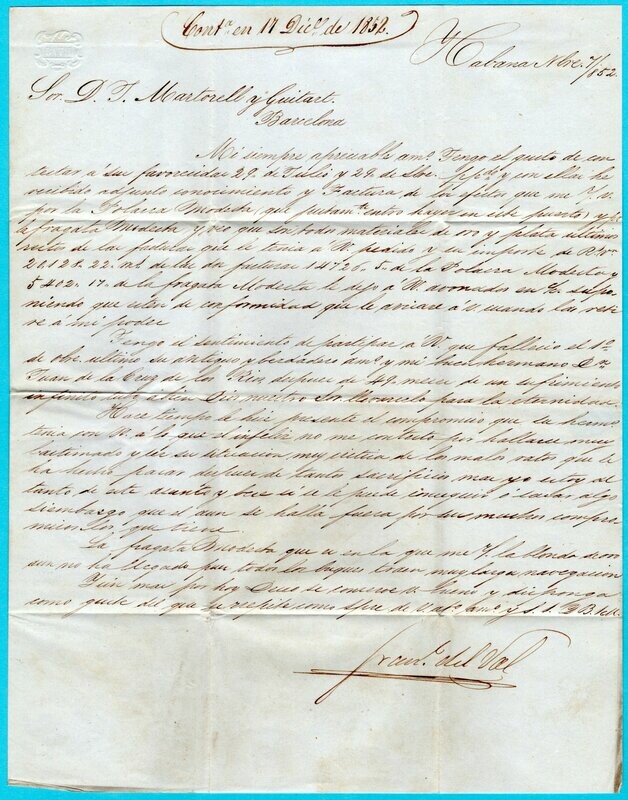 Contn. en 17 Dice. de 1852.
Habana Nbre 7/852.
Sor. D. J. Martorell y Guitart.
Barcelona
Mi siempre apreciable amo. Tengo el gusto de con
testar á sus favorecidas 29 de Julio y 29 de Sbre. y en ellas he
recibido adjunto conocimiento y Factura de los efectos que me
por la Polacra Modesta que entro hayer en este puerto y
la fragata Modesta y veo que son todos materiales de oro y plata ultimos
restos de las que le tenia á V. pedido y su importe de Rvn
20.128.22. ms. de las dos facturas 14726.5. de la Polacra Modesta y
5402.17. de la fragata Modesta le dejo á V. avonados en supo
niendo que estar de conformidad que le avisare á V. cuando las
á mi poder
Tengo el sentimiento de participar a V. que fallecio el 1o.
de obre. ultimo su antiguo y berdadero amo. y mi buen hermano Dn.
Juan de la Cruz de los Rios despues de 49 meses de un sufrimiento
infinito Dios nuestro Sor. para la eternidad.
Hace tiempo le hize presente el compromiso que su hermo.
tenia con V. a lo que el infeliz no me contesto por hallarse muy
lastimado y ver su situacion muy critica de los malos ratos que le
ha hecho pasar despues de tanto sacrificio mas yo estoy al
tanto de este asunto y si se le puede conseguir ó sacar algo
siembargo que el aun se halla fuera por sus muchos compro
misos que tiene.
La fragata Modesta que es en la que me la blonda de oro
aun no ha llegado pues todos los buques traen muy larga navegacion
y sin mas por hoy Deseo se conserve V. bueno y disponga
como guste del que le respeta como spre. de V. afo. amo. y s. s. Q. B. S. M.
Franco. del Val